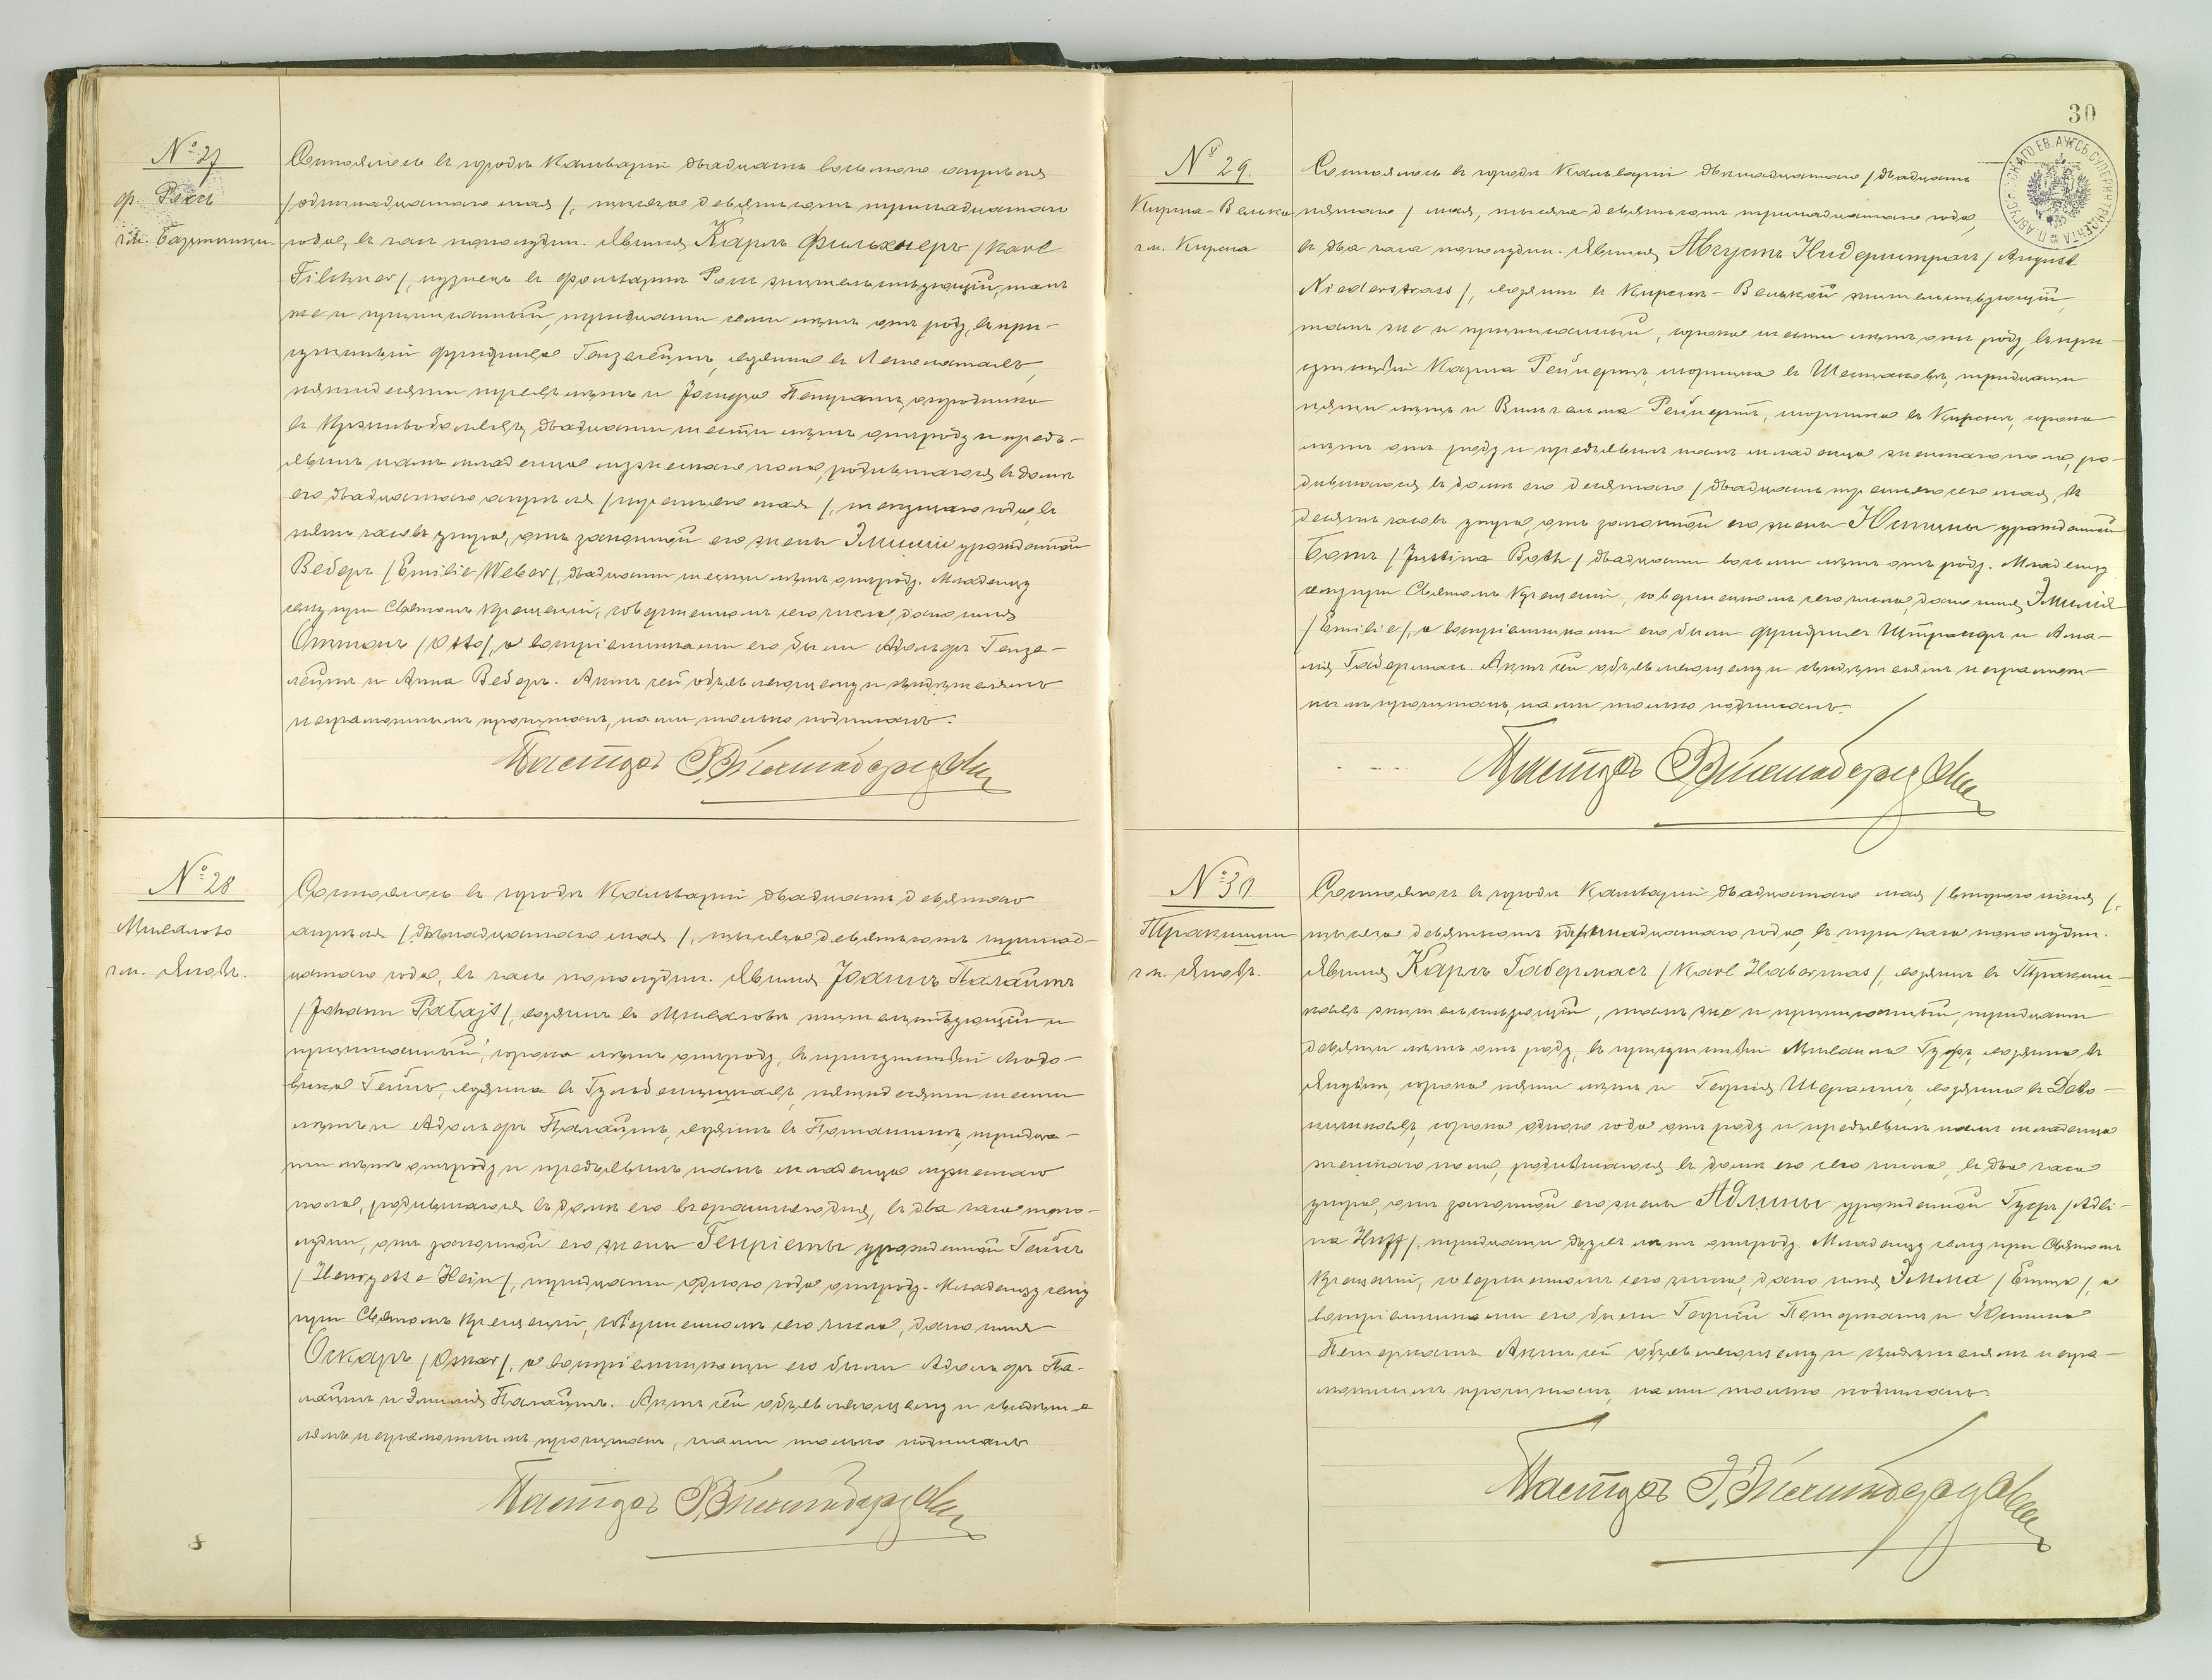 № 27
ф. Рекси
Состоялось въ городѣ Кальваріи двадцать восьмого апрѣля
/одиннадцатаго мая/, тысяча девятьсотъ тринадцатаго
года, въ часъ пополудни. Явился Карлъ Фильхнеръ /Karl
Filchner/, кузнецъ въ фольваркѣ жительствующій, тамъ
же и приписанный, тридцати семи лѣтъ отъ роду, въ при-
сутствіи Фридриха Гензелейтъ, хозяина въ
пятидесяти трехъ лѣтъ и Іосифа огородника
въ двадцати шести лѣтъ отъ роду и предъ-
явилъ намъ младенца мужескаго пола, родившагося въ домѣ
его двадцатаго апрѣля /третьяго мая/, текущаго года, въ
пять часовъ утра, отъ законной его жены Эмиліи урожденной
Веберъ /Emilie Weber/, двадцати шести лѣтъ отъ роду. Младенцу
сему при Святомъ Крещеніи, совершенномъ сего числа, дано имя
Оттонъ /Otto/, а воспріемниками его были Адольфъ Гензе-
лейтъ и Анна Веберъ. Актъ сей объявляющему и свидѣтелямъ
неграмотнымъ прочитанъ, нами только подписанъ.
Пасторъ
№ 28
гм. Яновъ.
Состоялось въ городѣ Кальваріи двадцать девятаго
апрѣля /двѣнадцатаго мая/, тысяча девятьсотъ тринад-
цатаго года, въ часъ пополудни. Явился Іоаннъ Палайтъ
/Johann Palajt/, хозяинъ въ жительствующій и
приписанный, сорока лѣтъ отъ роду, въ присутствіи Людо-
вика Гейнъ, хозяина въ пятидесяти шести
лѣтъ и Адольфа Палайтъ, хозяина въ тридца-
ти лѣтъ отъ роду и предъявилъ намъ младенца мужескаго
пола, родившагося въ домѣ его вчерашняго дня, въ два часа попо-
лудни, отъ законной его жены Генріеты урожденной Гейнъ
/Henryette Hein/, тридцати одного года отъ роду. Младенцу сему
при Святомъ Крещеніи, совершенномъ сего числа, дано имя
Оскаръ /Oskar/, а воспріемниками его были Адольфъ Па-
лайтъ и Эмилія Палайтъ. Актъ сей объявляющему и свидѣте-
лямъ неграмотнымъ прочитанъ, нами только подписанъ
Пасторъ
30
№ 29.
Кирсна-Велька
гм. Кирсна
Состоялось въ городѣ Кальваріи двѣнадцатаго /двадцать
пятаго/ мая, тысяча девятьсотъ тринадцатаго года,
въ два часа пополудни. Явился Августъ Нидерштрасъ /August
Niederstrass/, хозяинъ въ Кирснѣ-Велькой жительствующій,
тамъ же и приписанный, сорока шести лѣтъ отъ роду, въ при-
сутствіи Карла Рейнертъ, въ тридцати
пяти лѣтъ и Вильгельма Рейнертъ, въ Кирснѣ, сорока
лѣтъ отъ роду и предъявилъ намъ младенца женскаго пола, ро-
дившагося въ домѣ его десятаго /двадцать третьяго сего мая/, въ
десять часовъ утра, отъ законной его жены Юстины урожденной
Ботъ /Justina Both/ двадцати восьми лѣтъ отъ роду. Младенцу
сему при Святомъ Крещеніи, совершенномъ сего числа, дано имя Эмилія
/Emilie/, а воспріемниками его были Фридрихъ и Ама-
лія Габермасъ. Актъ сей объявляющему и свидѣтелямъ неграмот-
нымъ прочитанъ, нами только подписанъ.
Пасторъ
№ 30
гм. Яновъ.
Состоялось въ городѣ Кальваріи двадцатаго мая /второго іюня/,
тысяча девятьсотъ тринадцатаго года, въ три часа пополудни.
Явился Карлъ Габермасъ /Karl Habermas/, хозяинъ въ Тракиш-
кахъ жительствующій, тамъ же и приписанный, тридцати
девяти лѣтъ отъ роду, въ присутствіи Михаила Гуфъ, хозяина въ
сорока пяти лѣтъ и Георгія хозяина въ Дево-
сорока одного года отъ роду и предъявилъ намъ младенца
женскаго пола, родившагося въ домѣ его сего числа, въ два часа
утра, отъ законной его жены Адлины урожденной Гуфъ /Adli-
na Huff/, тридцати двухъ лѣтъ отъ роду. Младенцу сему при Святомъ
Крещеніи, совершенномъ сего числа, дано имя Эмма /Emma/, а
воспріемниками его были Георгій Петерманъ и Юстина
Петерманъ. Актъ сей объявляющему и свидѣтелямъ негра-
мотнымъ прочитанъ, нами только подписанъ.
Пасторъ